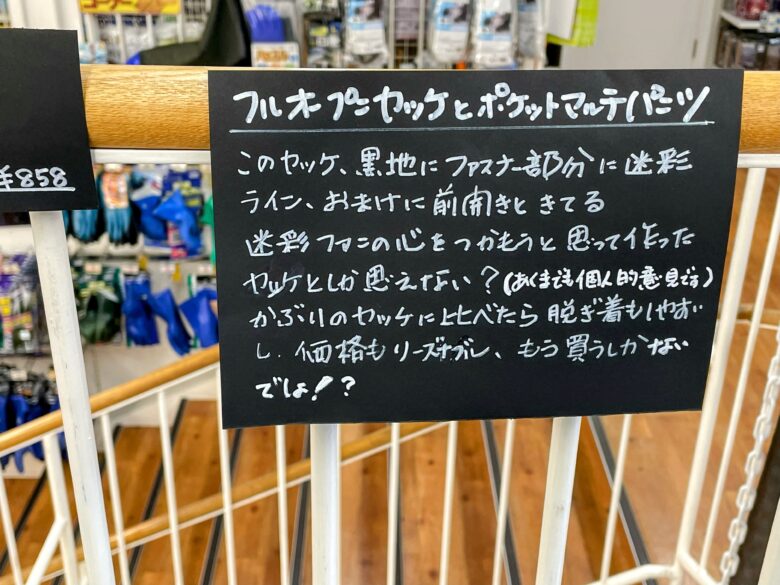 ¥858
フルオープンヤッケとポケットマルチパンツ
このヤッケ、黒地にファスナー部分に迷彩
ライン、おまけに前開きときてる
迷彩ファンの心をつかもうと思って作った
ヤッケとしか思えない?(あくまでも個人的意見です)
かぶりのヤッケに比べたら脱ぎ着もしやすい
し、価格もリーズナブル、もう買うしかない
でしょ!?